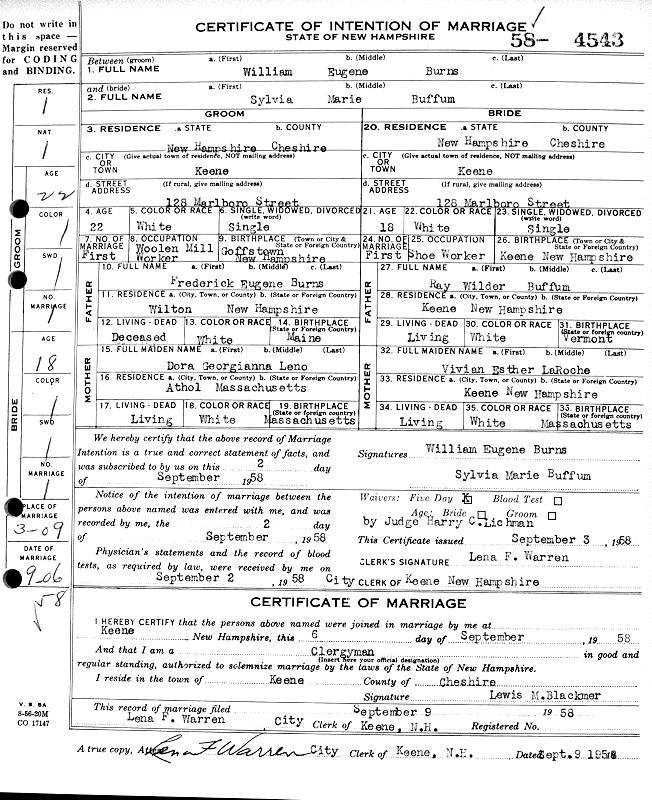 Do not write in
this space —
Margin reserved
for CODING
and BINDING.
CERTIFICATE OF INTENTION OF MARRIAGE ✓
STATE OF NEW HAMPSHIRE
58- 4543
Between (groom) a. (First) b. (Middle) c. (Last)
1. FULL NAME William Eugene Burns
and (bride) a. (First) b. (Middle) c. (Last)
2. FULL NAME Sylvia Marie Buffum
GROOM BRIDE
3. RESIDENCE .a STATE b. COUNTY 20. RESIDENCE .a STATE b. COUNTY
New Hampshire Cheshire New Hampshire Cheshire
c. CITY OR TOWN (Give actual town of residence, NOT mailing address) c. CITY OR TOWN (Give actual town of residence, NOT mailing address)
Keene Keene
d. STREET ADDRESS (If rural, give mailing address) d. STREET ADDRESS (If rural, give mailing address)
128 Marlboro Street 128 Marlboro Street
4. AGE 5. COLOR OR RACE 6. SINGLE, WIDOWED, DIVORCED (write word) 21. AGE 22. COLOR OR RACE 23. SINGLE, WIDOWED, DIVORCED (write word)
22 White Single 18 White Single
7. NO. OF MARRIAGE 8. OCCUPATION 9. BIRTHPLACE (Town or City & State or Foreign Country) 24. NO. OF MARRIAGE 25. OCCUPATION 26. BIRTHPLACE (Town or City & State or Foreign Country)
First Woolen Mill Worker Goffstown New Hampshire First Shoe Worker Keene New Hampshire
FATHER
10. FULL NAME a. (First) b. (Middle) c. (Last) 27. FULL NAME a. (First) b. (Middle) c. (Last)
Frederick Eugene Burns Ray Wilder Buffum
11. RESIDENCE a. (City, Town, or County) b. (State or Foreign Country) 28. RESIDENCE a. (City, Town, or County) b. (State or Foreign Country)
Wilton New Hampshire Keene New Hampshire
12. LIVING - DEAD 13. COLOR OR RACE 14. BIRTHPLACE (State or Foreign Country) 29. LIVING - DEAD 30. COLOR OR RACE 31. BIRTHPLACE (State or Foreign Country)
Deceased White Maine Living White Vermont
MOTHER
15. FULL MAIDEN NAME a. (First) b. (Middle) (Last) 32. FULL MAIDEN NAME a. (First) b. (Middle) (Last)
Dora Georgianna Leno Vivian Esther LaRoche
16. RESIDENCE a. (City, Town, or County) b. (State or Foreign Country) 33. RESIDENCE a. (City, Town, or County) b. (State or Foreign Country)
Athol Massachusetts Keene New Hampshire
17. LIVING - DEAD 18. COLOR OR RACE 19. BIRTHPLACE (State or foreign country) 34. LIVING - DEAD 35. COLOR OR RACE 33. BIRTHPLACE (State or foreign country)
Living White Massachusetts Living White Massachusetts
We hereby certify that the above record of Marriage
Intention is a true and correct statement of facts, and
was subscribed to by us on this 2 day
of September 1958
Signatures William Eugene Burns
Sylvia Marie Buffum
Notice of the intention of marriage between the
persons above named was entered with me, and was
recorded by me, the 2 day
of September , 1958
Waivers: Five Day X Blood Test
Age: Bride Groom
by Judge Harry C. Lichman
This Certificate issued September 3 , 1958
Physician's statements and the record of blood
tests, as required by law, were received by me on
September 2 , 1958
CLERK'S SIGNATURE Lena F. Warren
City CLERK OF Keene New Hampshire
CERTIFICATE OF MARRIAGE
I HEREBY CERTIFY that the persons above named were joined in marriage by me at
Keene New Hampshire, this 6 day of September , 19 58
And that I am a Clergyman in good and
(Insert here your official designation)
regular standing, authorized to solemnize marriage by the laws of the State of New Hampshire.
I reside in the town of Keene County of Cheshire
Signature Lewis M. Blackmer
This record of marriage filed September 9 19 58
Lena F. Warren , City Clerk of Keene, N.H. Registered No.
A true copy, Lena F Warren City Clerk of Keene, N.H. Dated Sept. 9 195
RES.
1
NAT.
1
AGE
22
COLOR
1
GROOM
SWD
1
NO. MARRIAGE
1
AGE
18
COLOR
1
BRIDE
SWD
1
NO. MARRIAGE
1
PLACE OF MARRIAGE
3-09
DATE OF MARRIAGE
906
58
V. S. 8A
8-56-20M
CO 17147